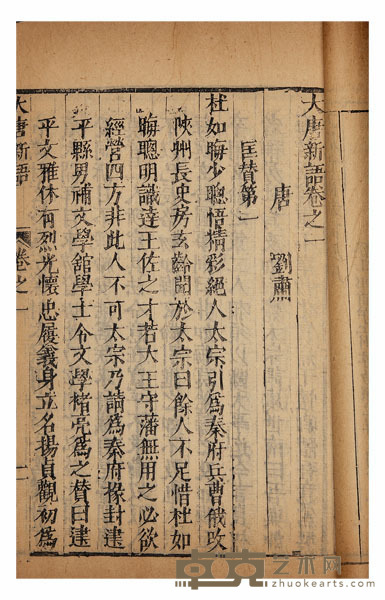 大唐新語卷之一
唐 劉肅
匡贊第一
杜如晦少聰悟精彩絕人太宗引為秦府兵曹俄改
陝州長史房玄齡聞於太宗曰餘人不足惜杜如
晦聰明識達王佐之才若大王守藩無用之必欲
經營四方非此人不可太宗乃請為秦府掾封建
平縣男補文學舘學士令文學褚亮為之贊曰建
平文雅休有烈光懷忠履義身立名揚貞觀初為
大唐新語 卷之一 一
卓克艺术网
zhuokearts.com